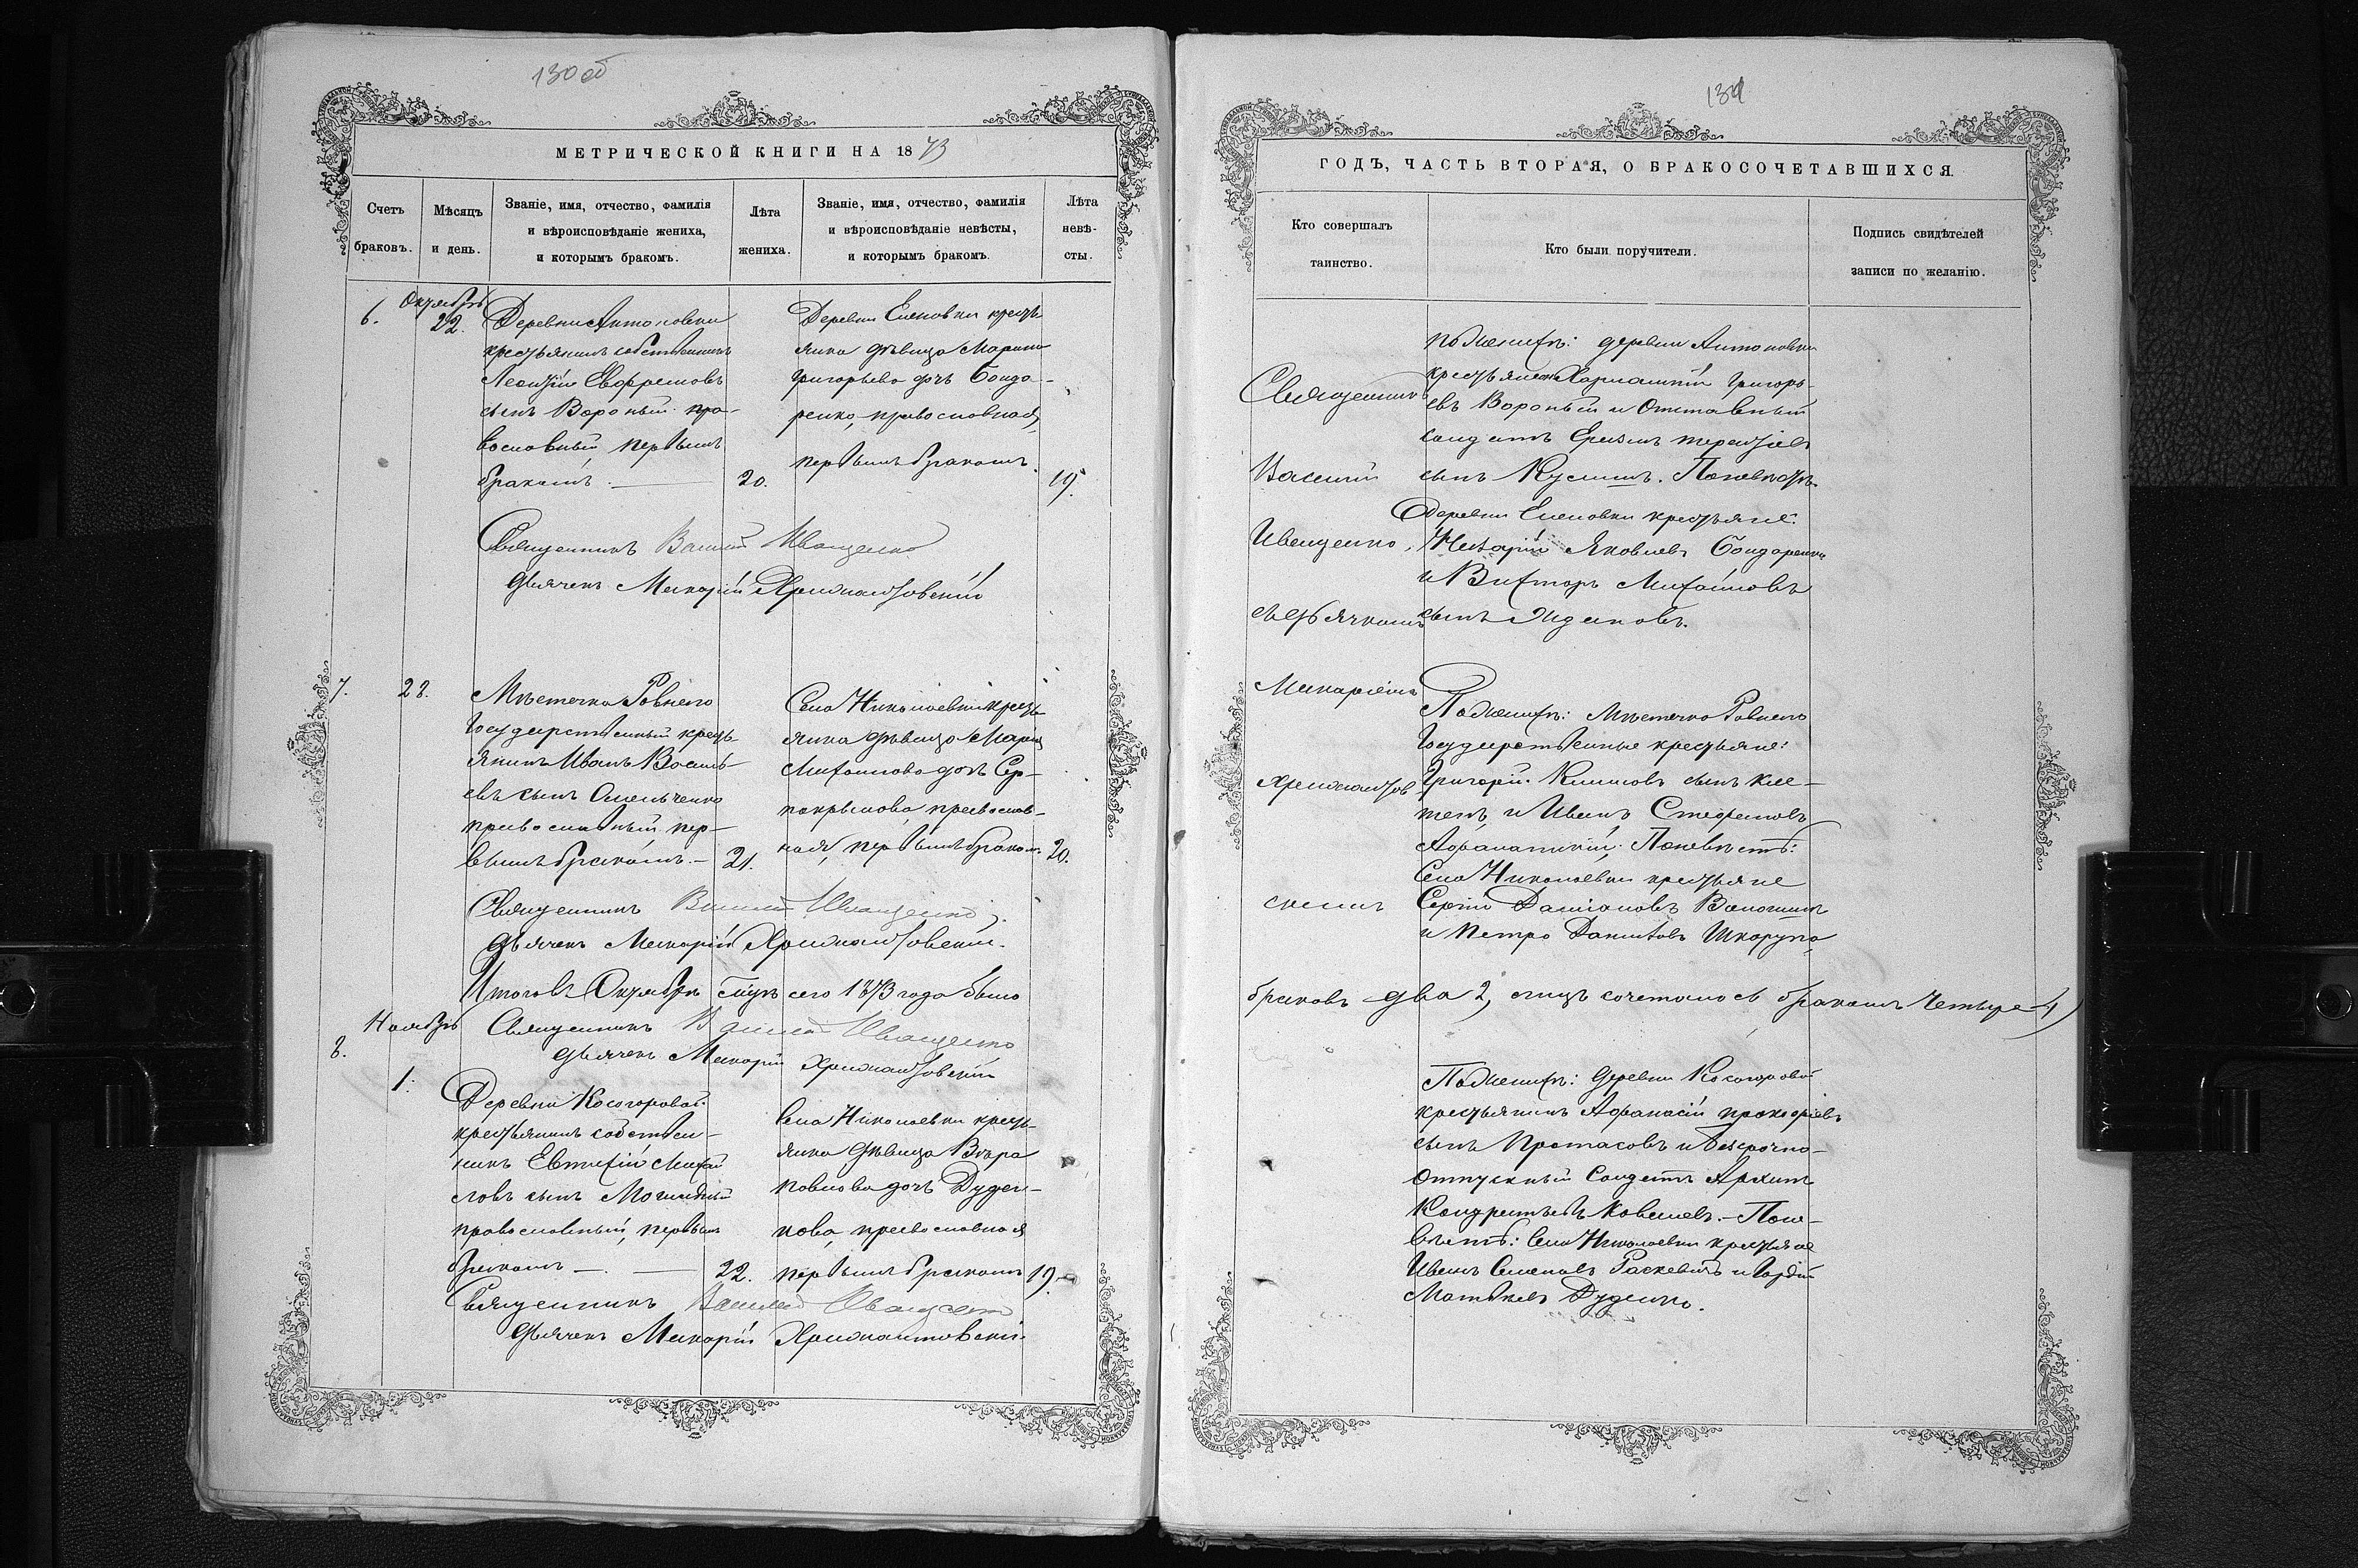 130 об
МЕТРИЧЕСКОЙ КНИГИ НА 1873
Счетъ браковъ.
Мѣсяцъ и день.
Званіе, имя, отчество, фамилія
и вѣроисповѣданіе жениха,
и которымъ бракомъ.
Лѣта жениха.
Званіе, имя, отчество, фамилія
и вѣроисповѣданіе невѣсты,
и которымъ бракомъ.
Лѣта невѣ-
сты.
6.
Октябрь
22.
Деревни Антоновки
крестьянинъ собственникъ
Леонтій Евфремовъ
сынъ Вороный пра-
вославный, первымъ
бракомъ.
20.
Деревни Еленовки кресть-
янка дѣвица Марина
Григорьева дочь Бонда-
ренко, православная,
первымъ бракомъ.
19.
Священникъ Василій Иващенко
Дьячекъ Макарій
7.
28.
Мѣстечка Ровнаго
Государственный кресть-
янинъ Иванъ Василь-
евъ сынъ Омельченко
православный, пер-
вымъ бракомъ.
21.
Села Николаевки кресть
янка дѣвица Марія
Михаилова дочь Сер-
покрылова, православ-
ная, первымъ бракомъ.
20.
Священникъ Василій Иващенко
Дьячекъ Макарій
Итого въ Октябрѣ сего 1873 года было
Священникъ Василій Иващенко
Дьячекъ Макарій
8.
Ноябрь
1.
Деревни Косогоровой
крестьянинъ собствен-
никъ Евтихій Михаи
ловъ сынъ
православный, первымъ
бракомъ
22.
Села Николаевки кресть-
янка дѣвица Вѣра
Павлова дочь Дуден-
кова, православная
первымъ бракомъ
19.
Священникъ Василій Иващенко
Дьячекъ Макарій
131
ГОДЪ, ЧАСТЬ ВТОРАЯ, О БРАКОСОЧЕТАВШИХСЯ.
Кто совершалъ
таинство.
Кто были поручители.
Подпись свидѣтелей
записи по желанію.
Священникъ
Василій
Иващенко,
съ дьячкомъ
Макаріемъ
скимъ
По женихѣ: деревни Антоновки
крестьянинъ Харлампій Григорь-
евъ Вороный и Отставный
солдатъ Терентіевъ
сынъ По невѣстѣ
Деревни Еленовки крестьяне:
Назарій Яковлевъ Бондаренко
и Викторъ Михаиловъ
сынъ Ждановъ.
По женихѣ: Мѣстечка Ровнаго
Государственные крестьяне:
Григорій Климовъ сынъ
и Иванъ Стефановъ
По невѣстѣ:
Села Николаевки крестьяне
Сергій Даміановъ Волошинъ
и Петро Даниловъ Шкорупа
браковъ два 2, лицъ сочеталось бракомъ Четыре 4)
По женихѣ: Деревни Косогоровой
крестьянинъ Афанасій Прокофіевъ
сынъ Протасовъ и безсрочно-
отпускный Солдатъ Архипъ
Кондратьевъ Ковалевъ.- По не-
вѣстѣ: Села Николаевки крестьяне
Иванъ Семеновъ Раскевичъ и Гордій
Матвѣевъ Дуденко.